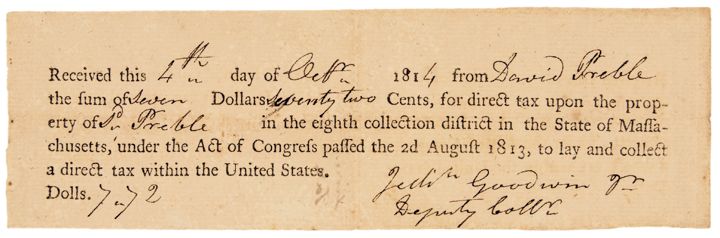 Received this 4th day of Octr 1814 from David Preble
the ſum of seven Dollars seventy two Cents, for direct tax upon the prop-
erty of Sd Preble in the eighth collection diſtrict in the State of Maſſa-
chusetts, under the Act of Congreſs paſſed the 2d Auguſt 1813, to lay and collect
a direct tax within the United States.
Dolls. 7,,72
Jedih Goodwin Jr
Deputy Collr